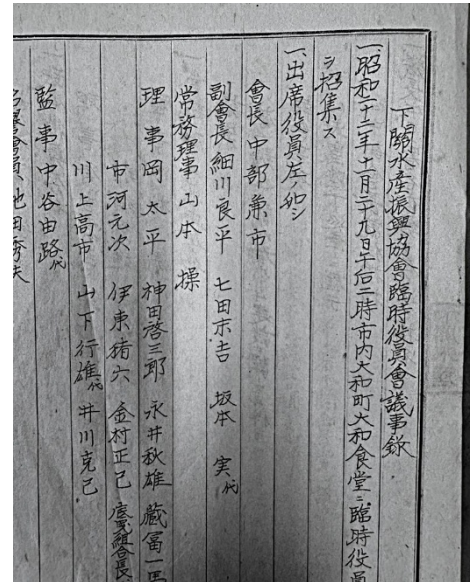 下關水産振興協會臨時役員會議事錄
一、昭和二十二年十一月二十九日午后二時市内大和町大和食堂ニ臨時役員
ヲ招集ス
一、出席役員左ノ如シ
會長 中部兼市
副會長 細川良平 七田末吉 坂本 実代
常務理事 山本 操
理事 岡 太平 神田啓三郎 永井秋雄 藏冨一馬
市河元次 伊東猪六 金村正己 組合長
川上高市 山下行雄代 井川克己
監事 中谷由路代
池田秀夫